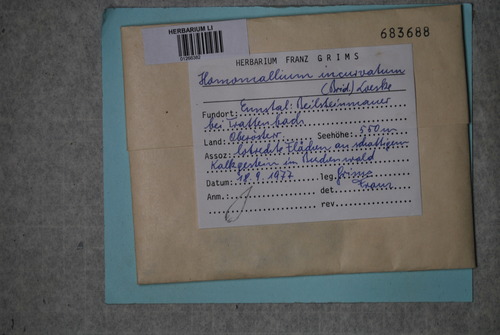 HERBARIUM LI
683688
HERBARIUM FRANZ GRIMS
Homomallium incurvatum
(Brid) Loeske
Fundort: Ennstal: Beilsteinmauer
bei Trattenbach
Land: Oberösterr. Seehöhe: 550m
Assoz: Flächen an schattigem
Kalkgestein im Buchenwald
Datum: 18.9.1977 leg. Grims
Anm.: det. Franz
rev.